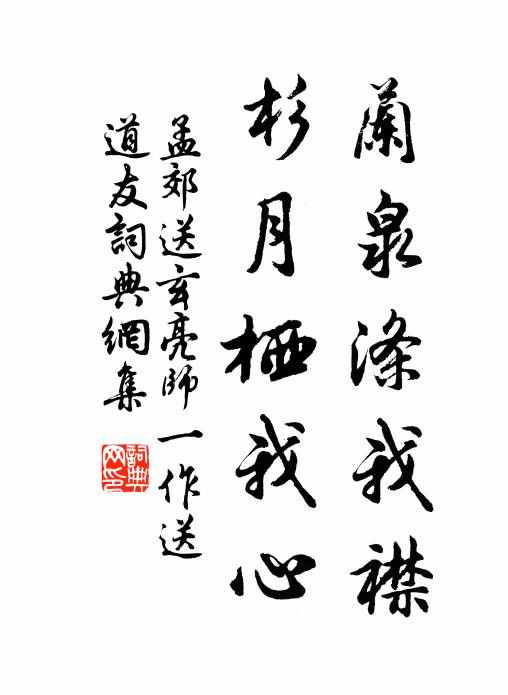 蘭泉滌我襟
杉月栖我心
孟郊送玄亮師一作送
道友詞典網集
詞典網印